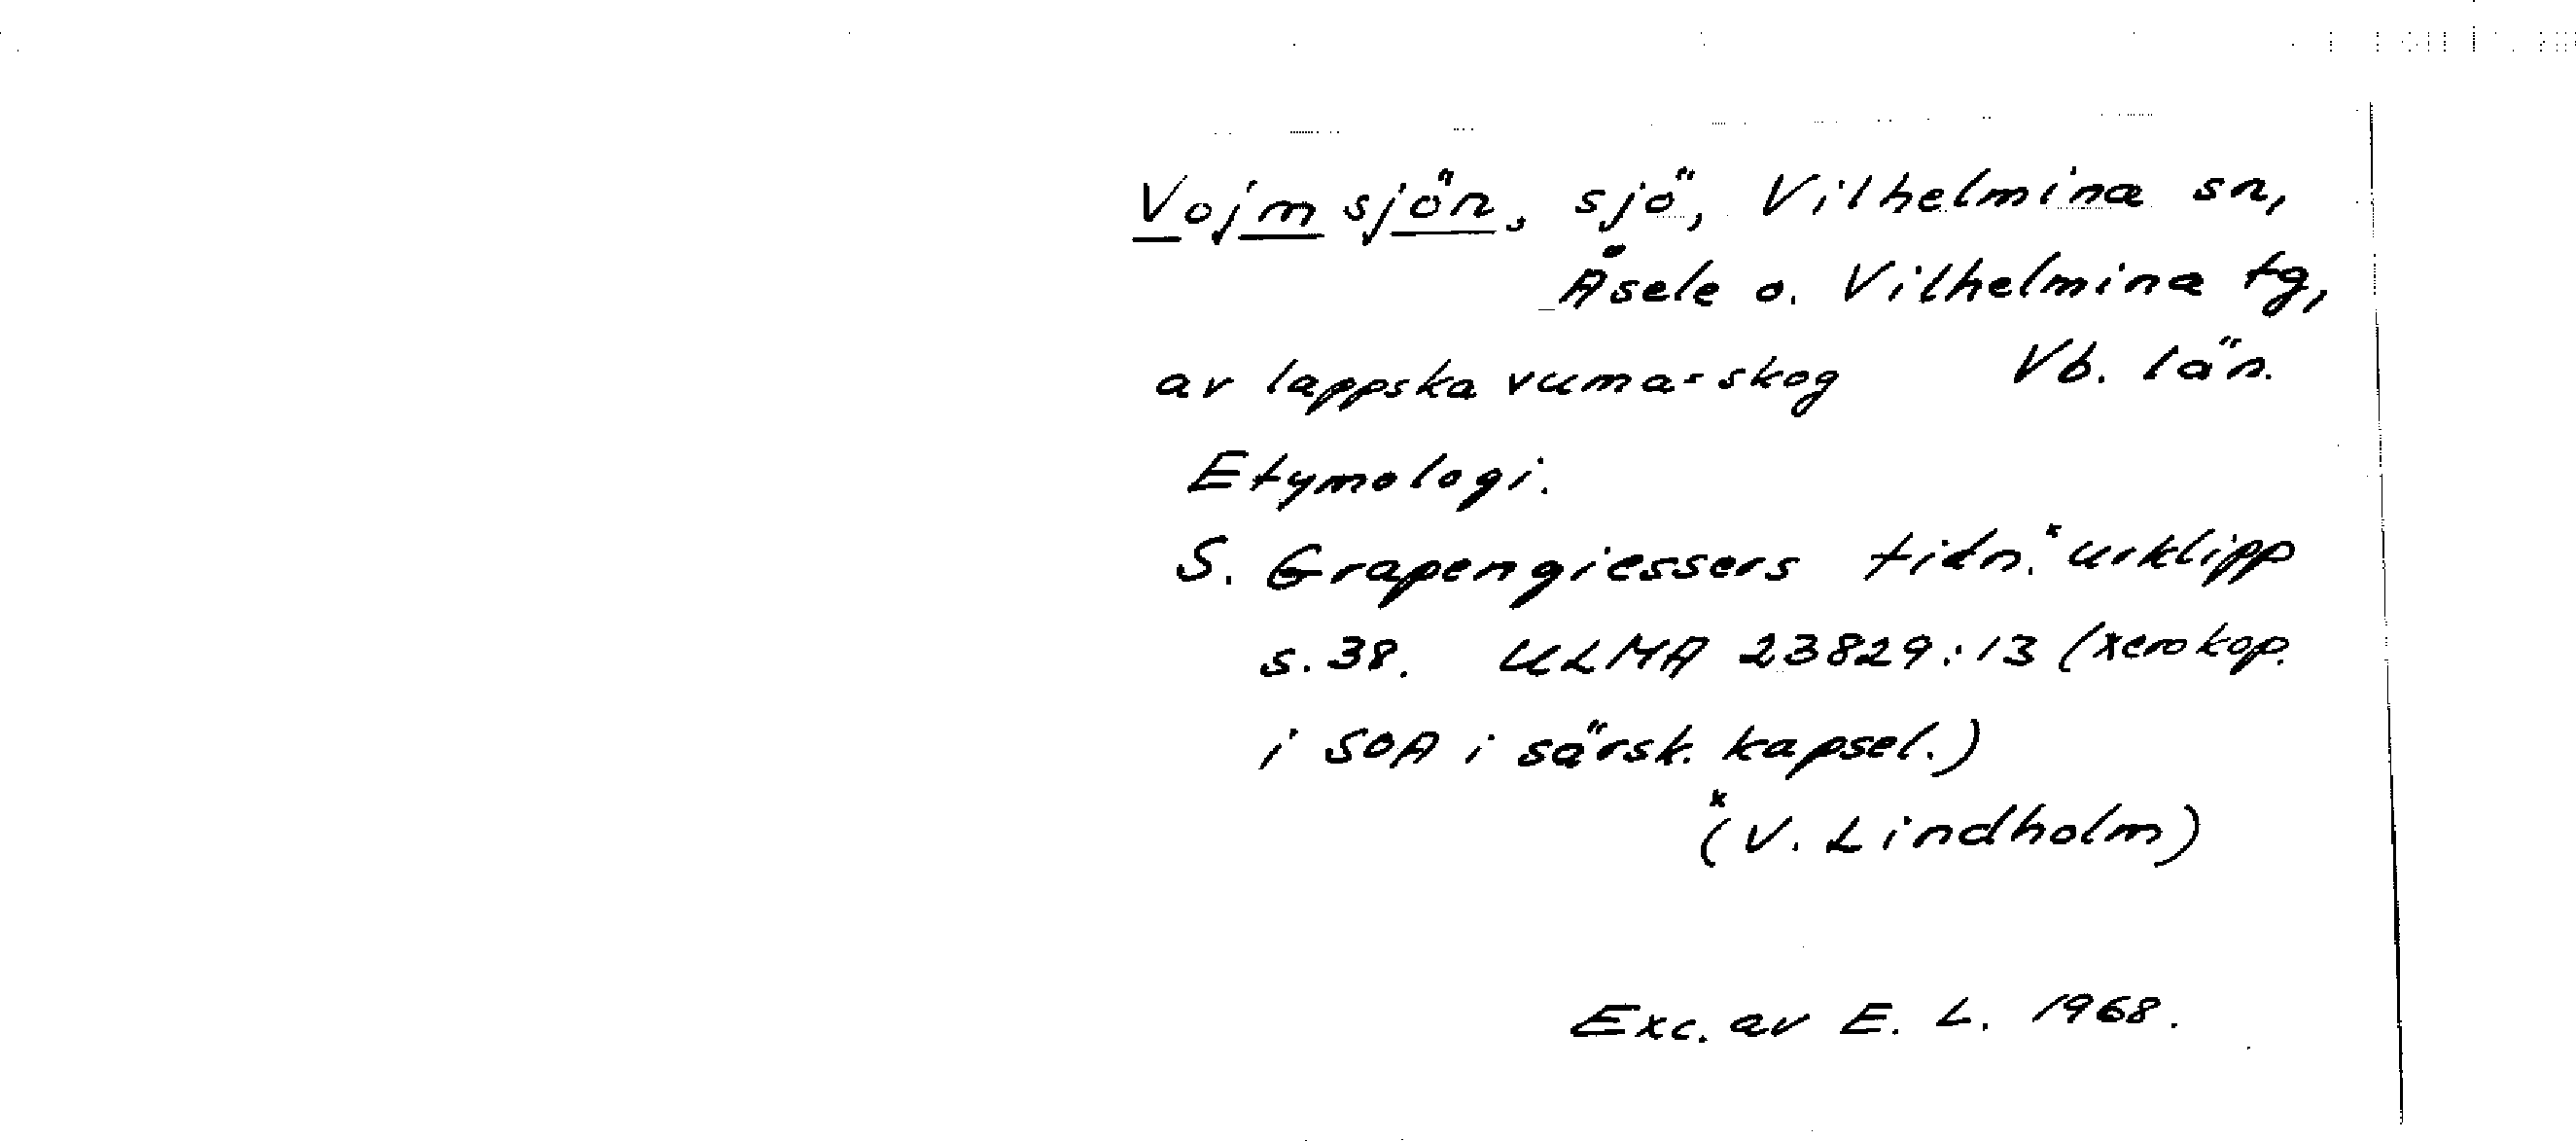 Vojmsjön, sjö, Vilhelmina sn,
Åsele o. Vilhelmina tg,
av lappska vuma = skog Vb. län.
Etymologi.
S. Grapengiessers tidn.ˣ urklipp
s. 38. ULMA 23829:13 (xerokop.
i SOA i särsk. kapsel.)
ˣ(V. Lindholm)
Exc. av E. L. 1968.